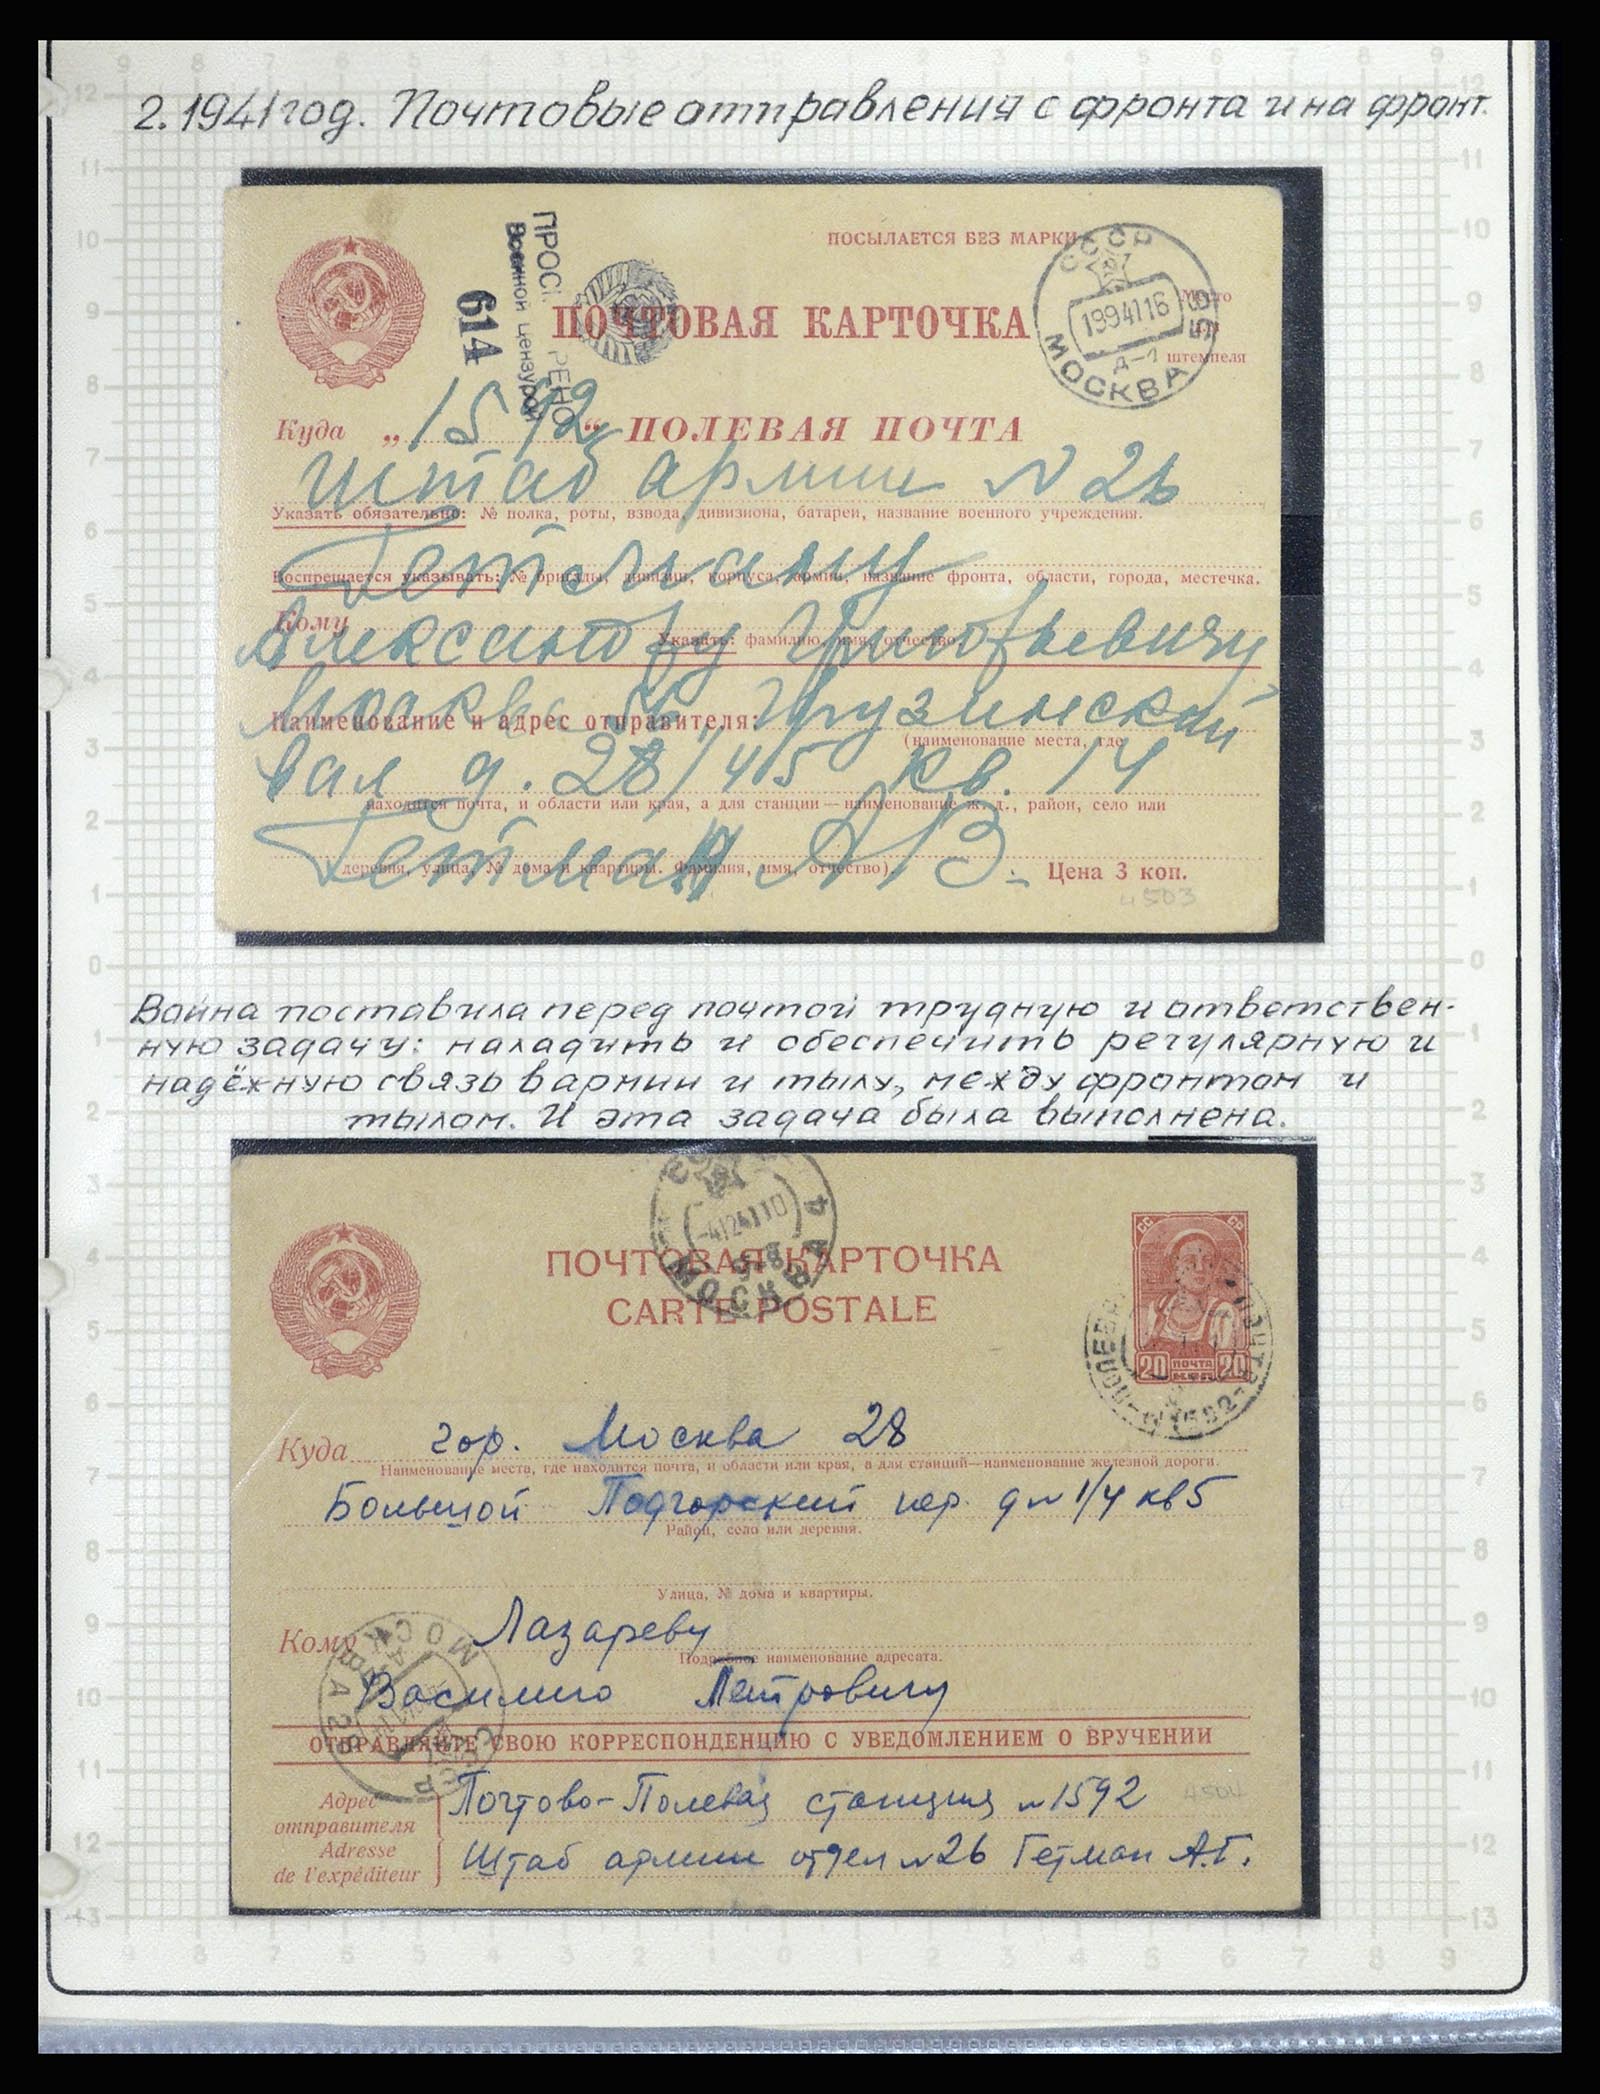 2. 1941 год. Почтовые отправления с фронта и на фронт.
ПОСЫЛАЕТСЯ БЕЗ МАРКИ
614
Военной цензурой
ПОЧТОВАЯ КАРТОЧКА
СССР
МОСКВА
1994116
Место
штемпеля
Куда „1592“ ПОЛЕВАЯ ПОЧТА
Штаб армии N 26
Указать обязательно: № полка, роты, взвода, дивизиона, батареи, название военного учреждения.
Гетману
Воспрещается указывать: № бригады, дивизии, корпуса, армии, название фронта, области, города, местечка.
Кому
Александру Григорьевичу
Указать: фамилию, имя, отчество
Москва Грузинский
Наименование и адрес отправителя:
(наименование места, где
вал д. 28/45 кв. 14
находится почта, и области или края, а для станции — наименование ж. д., район, село или
Гетман А В.
деревня, улица, № дома и квартиры. Фамилия, имя, отчество).
Цена 3 коп.
4503
Война поставила перед почтой трудную и ответствен-
ную задачу: наладить и обеспечить регулярную и
надёжную связь в армии и тылу, между фронтом и
тылом. И эта задача была выполнена.
МОСКВА
СС СР
ПОЧТОВАЯ КАРТОЧКА
CARTE POSTALE
20 ПОЧТА КОП. 20
Куда гор. Москва 28
Наименование места, где находится почта, и области или края, а для станций—наименование железной дороги.
Большой Подгорский пер. д N 1/4 кв 5
Район, село или деревня.
Улица, № дома и квартиры.
Кому Лазареву
Подробное наименование адресата.
Василию Петровичу
ОТПРАВЛЯЙТЕ СВОЮ КОРРЕСПОНДЕНЦИЮ С УВЕДОМЛЕНИЕМ О ВРУЧЕНИИ
МОСКВА 28
СССР
Адрес
отправителя
Adresse
de l'expéditeur
Почтово-Полевая станция N 1592
4504
Штаб армии отдел N 26 Гетман А.Г.